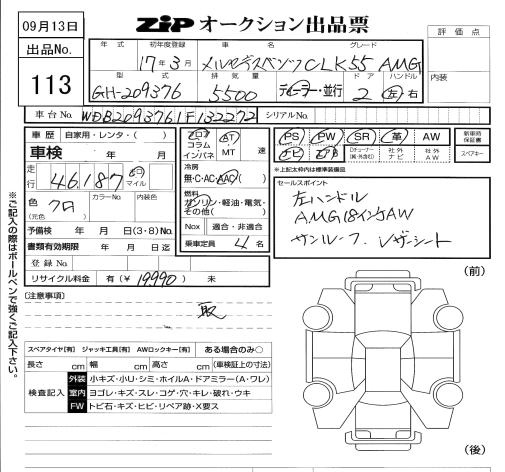 09月13日
ZIP オークション出品票
出品No.
113
年式 初年度登録 車名 グレード
17年3月 メルセデスベンツCLK55 AMG
型式 排気量 ドア ハンドル
GH-209376 5500 ディーラー・並行 2 左 右
評価点
内装
車台No. WDB2093761F132272
シリアルNo.
車歴 自家用・レンタ・( )
車検 年 月
走行 46187 キロ マイル
色 クロ カラーNo. 内装色
(元色)
予備検 年 月 日(3・8)No.
書類有効期限 年 月 日迄
登録No.
リサイクル料金 有(¥19,990) 未
フロア コラム インパネ
AT MT 速
冷房
無・C・AC・AAC
燃料
ガソリン・軽油・電気・その他( )
Nox 適合・非適合
乗車定員 4名
PS PW SR 革 AW
ナビ Dチューナー(純・外含む) 社外ナビ 社外AW
新車時保証書
スペアキー
*上記太枠内は標準装備品
セールスポイント
左ハンドル
AMG18インチAW
サンルーフ. レザーシート
〔注意事項〕
取
(前)
スペアタイヤ[有] ジャッキ工具[有] AWロックキー[有] ある場合のみ○
長さ cm 幅 cm 高さ cm (車検証上の寸法)
検査記入
外装 小キズ・小リ・シミ・ホイルA・ドアミラー(A・ワレ)
室内 ヨゴレ・キズ・スレ・コゲ・穴・キレ・破れ・ウキ
FW トビ石・キズ・ヒビ・リペア跡・X要ス
(後)
※ご記入の際はボールペンで強くご記入下さい。